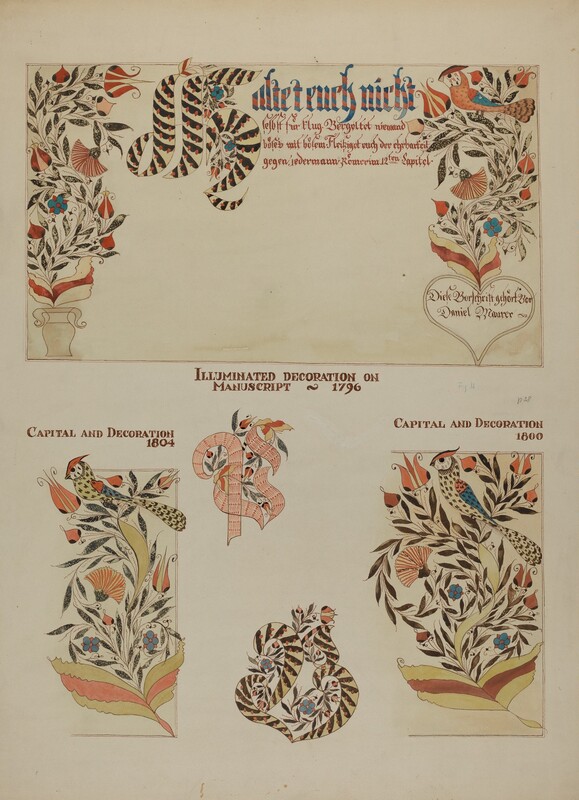 Haltet euch nicht
selbst für klug. Vergeltet niemand
böses mit bösem. Fleißiget euch der ehrbarkeit
gegen jedermann. Römer im 12ten Capitel.
Diese Vorschrift gehört Vor
Daniel Maurer
ILLUMINATED DECORATION ON
MANUSCRIPT ~ 1796
CAPITAL AND DECORATION
1804
CAPITAL AND DECORATION
1800